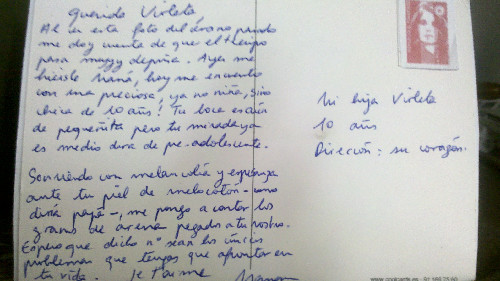 querida Violeta
Al ver esta foto del verano pasado
me doy cuenta de que el tiempo
pasa muyyy deprisa. Ayer me
hiciste mamá, hoy me encuentro
con una preciosa, ya no niña, sino
chica de 10 años! Tu boca es aún
de pequeñita pero tu mirada ya
es medio dura de pre-adolescente.
Sonriendo con melancolía y esperanza
ante tu piel de melocotón -como
diría papá-, me pongo a contar los
granos de arena pegados a tu rostro.
Espero que dicho nº sean los únicos
problemas que tengas que afrontar en
tu vida. Je t'aime
Mi hija Violeta
10 años
Dirección: su corazón.